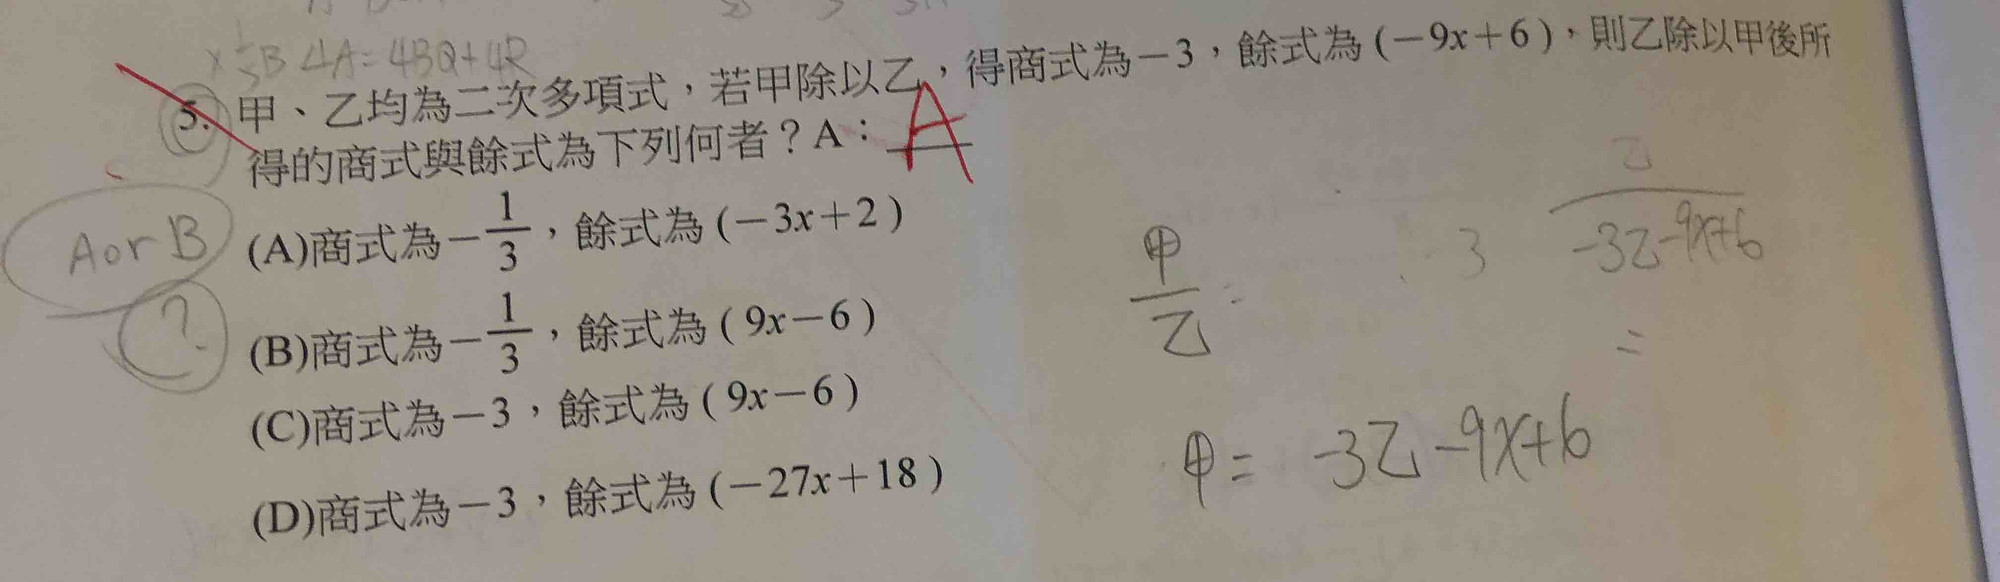 × 1/3 B 4A=4BQ+4R
5. 甲、乙均為二次多項式，若甲除以乙，得商式為－3，餘式為(－9x＋6)，則乙除以甲後所
得的商式與餘式為下列何者？A：A
(A)商式為－1/3，餘式為(－3x＋2)
A or B
(B)商式為－1/3，餘式為(9x－6)
?
(C)商式為－3，餘式為(9x－6)
(D)商式為－3，餘式為(－27x＋18)
甲/乙 = -3
乙/-3乙-9x+6
=
甲= -3乙-9x+6